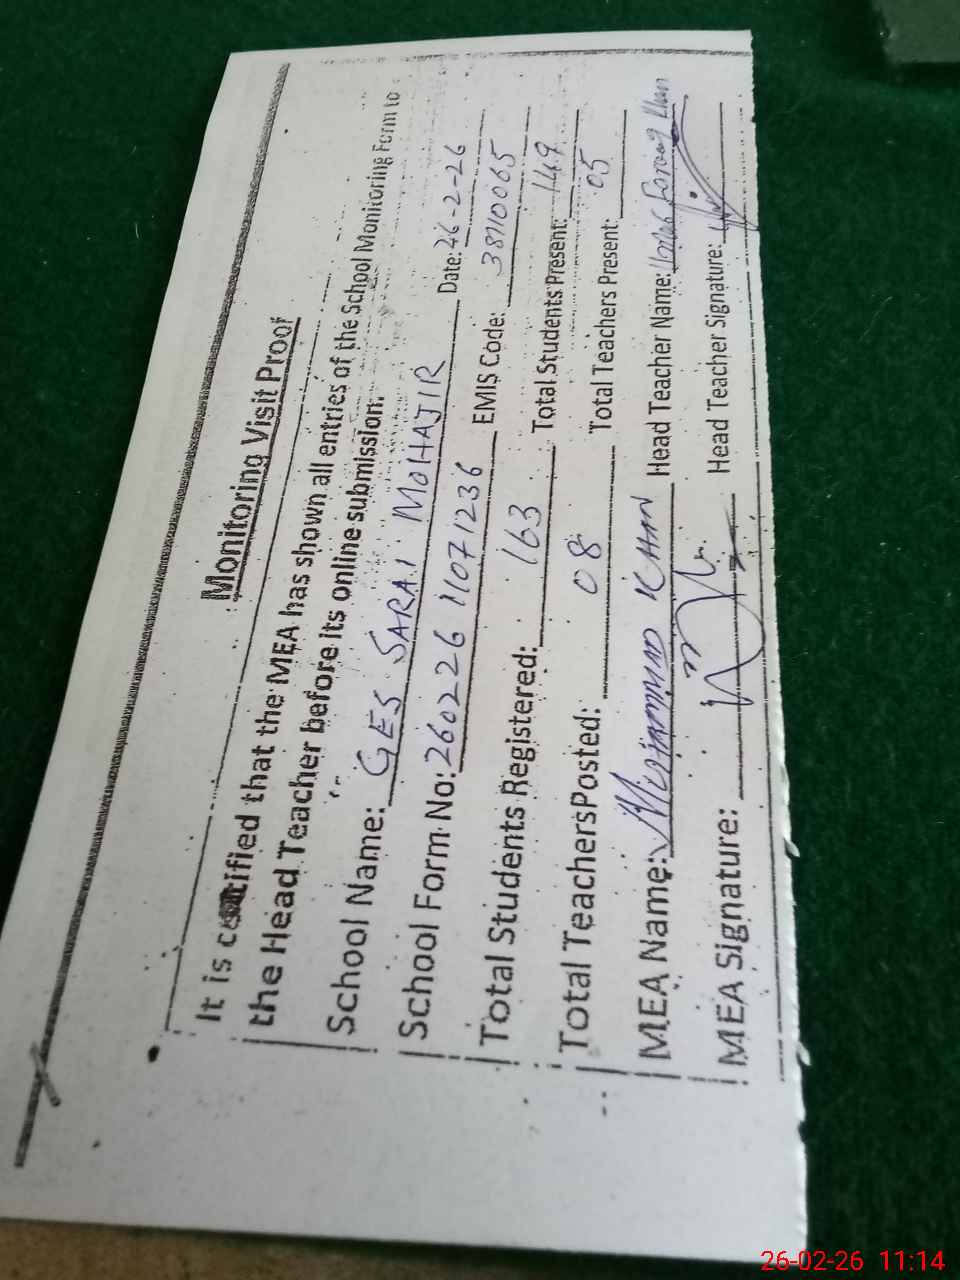 Monitoring Visit Proof
It is certified that the MEA has shown all entries of the School Monitoring Form to
the Head Teacher before its online submission.
School Name: GES SARAI MOHAJIR Date: 26-2-26
School Form No: 260226 11071236 EMIS Code: 38110065
Total Students Registered: 163 Total Students Present: 149
Total Teachers Posted: 08 Total Teachers Present: 05
MEA Name: Muhammad Khan Head Teacher Name: Farooq
MEA Signature: Head Teacher Signature:
26-02-26 11:14